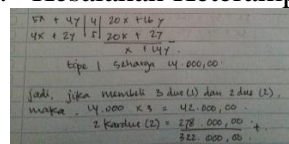 5x + 4y | 4 | 20x + 16y
4x + 2y | 5 | 20x + 2y
x + 14y.
tipe 1 seharga 14.000,00
jadi, jika membeli 3 dus (1) dan 2 dus (2),
maka. 14.000 x 3 = 42.000,00
2 kardus (2) = 278.000,00 +
322.000,00